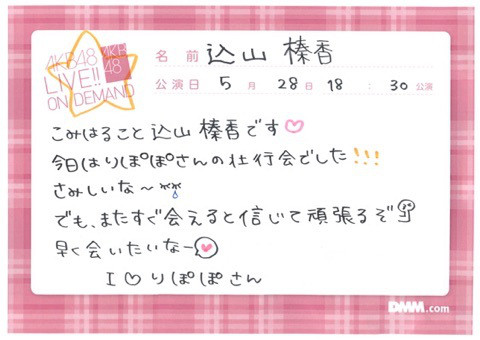 AKB48
LIVE!!
ON DEMAND
AKB
48
名前 込山 榛香
公演日 5月28日 18:30公演
こみはること込山榛香です♡
今日はりぽぽさんの壮行会でした!!!
さみしいな〜
でも、またすぐ会えると信じて頑張るぞ
早く会いたいなー
I♡りぽぽさん
DMM.com